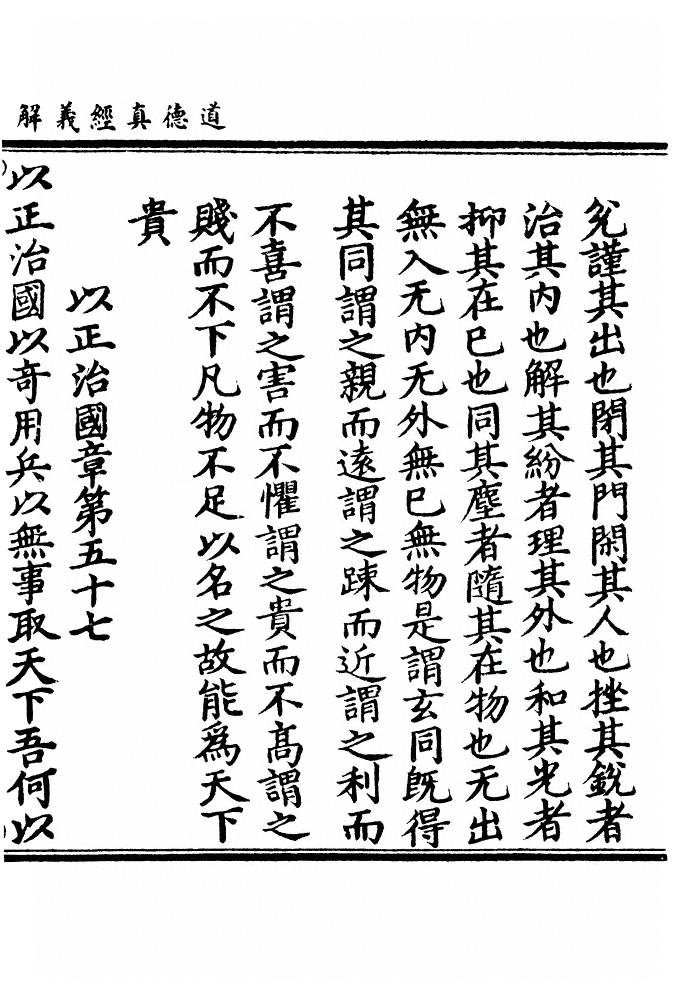 道德真經義解
兊謹其出也閉其門閑其人也挫其銳者
治其内也解其紛者理其外也和其光者
抑其在已也同其塵者隨其在物也无出
無入无内无外無已無物是謂玄同既得
其同謂之親而遠謂之踈而近謂之利而
不喜謂之害而不懼謂之貴而不髙謂之
賤而不下凡物不足以名之故能爲天下
貴
以正治國章第五十七
以正治國以奇用兵以無事取天下吾何以